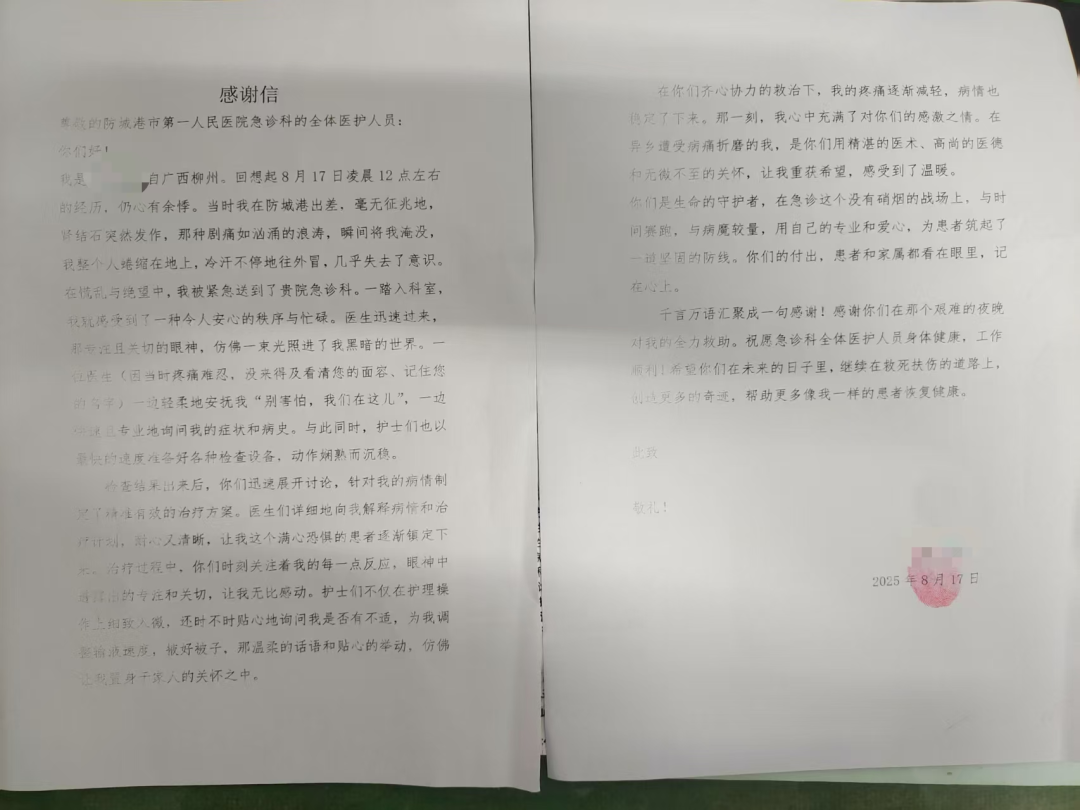 感谢信
尊敬的防城港市第一人民医院急诊科的全体医护人员：
你们好！
我是 自广西柳州。回想起8月17日凌晨12点左右
的经历，仍心有余悸。当时我在防城港出差，毫无征兆地，
肾结石突然发作，那种剧痛如汹涌的浪涛，瞬间将我淹没，
我整个人蜷缩在地上，冷汗不停地往外冒，几乎失去了意识。
在慌乱与绝望中，我被紧急送到了贵院急诊科。一踏入科室，
我就感受到了一种令人安心的秩序与忙碌。医生迅速过来，
那专注且关切的眼神，仿佛一束光照进了我黑暗的世界。一
位医生（因当时疼痛难忍，没来得及看清您的面容、记住您
的名字）一边轻柔地安抚我“别害怕，我们在这儿”，一边
速且专业地询问我的症状和病史。与此同时，护士们也以
最快的速度准备好各种检查设备，动作娴熟而沉稳。
检查结果出来后，你们迅速展开讨论，针对我的病情制
定了精准有效的治疗方案。医生们详细地向我解释病情和治
疗计划，耐心又清晰，让我这个满心恐惧的患者逐渐镇定下
来。治疗过程中，你们时刻关注着我的每一点反应，眼神中
的专注和关切，让我无比感动。护士们不仅在护理操
作上细致入微，还时不时贴心地询问我是否有不适，为我调
整输液速度，掖好被子，那温柔的话语和贴心的举动，仿佛
让我置身于家人的关怀之中。
在你们齐心协力的救治下，我的疼痛逐渐减轻，病情也
稳定了下来。那一刻，我心中充满了对你们的感激之情。在
异乡遭受病痛折磨的我，是你们用精湛的医术、高尚的医德
和无微不至的关怀，让我重获希望，感受到了温暖。
你们是生命的守护者，在急诊这个没有硝烟的战场上，与时
间赛跑，与病魔较量，用自己的专业和爱心，为患者筑起了
一道坚固的防线。你们的付出，患者和家属都看在眼里，记
在心上。
千言万语汇聚成一句感谢！感谢你们在那个艰难的夜晚
对我的全力救助。祝愿急诊科全体医护人员身体健康，工作
顺利！希望你们在未来的日子里，继续在救死扶伤的道路上，
创造更多的奇迹，帮助更多像我一样的患者恢复健康。
此致
敬礼！
2025年8月17日